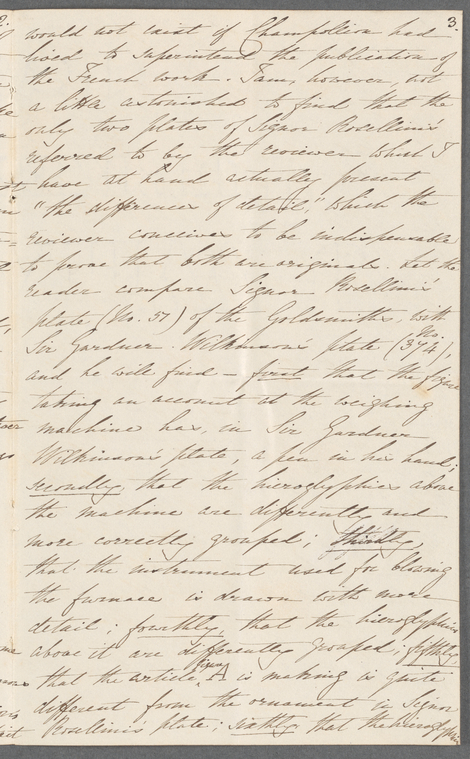 3.
would not exist if Champollion had
lived to superintend the publication of
the French work. I am, however, not
a little astonished to find that the
only two plates of Signor Rosellini's
referred to by the reviewer which I
have at hand actually present
"the differences of detail," which the
reviewer conceives to be indispensable
to prove that both are originals. Let the
reader compare Signor Rosellini's
plate (No. 51) of the Goldsmiths, with
Sir Gardner Wilkinson's plate (No. 374),
and he will find – first that the figure
taking an account at the weighing
machine has, in Sir Gardner
Wilkinson's plate, a pen in his hand;
secondly, that the hieroglyphics above
the machine are differently and
more correctly grouped; thirdly,
that the instrument used for blowing
the furnace is drawn with more
detail; fourthly, that the hieroglyphics
above it are differently grouped; fifthly,
that the article, a figure is making is quite
different from the ornament in Signor
Rosellini's plate; sixthly that the hieroglyphics